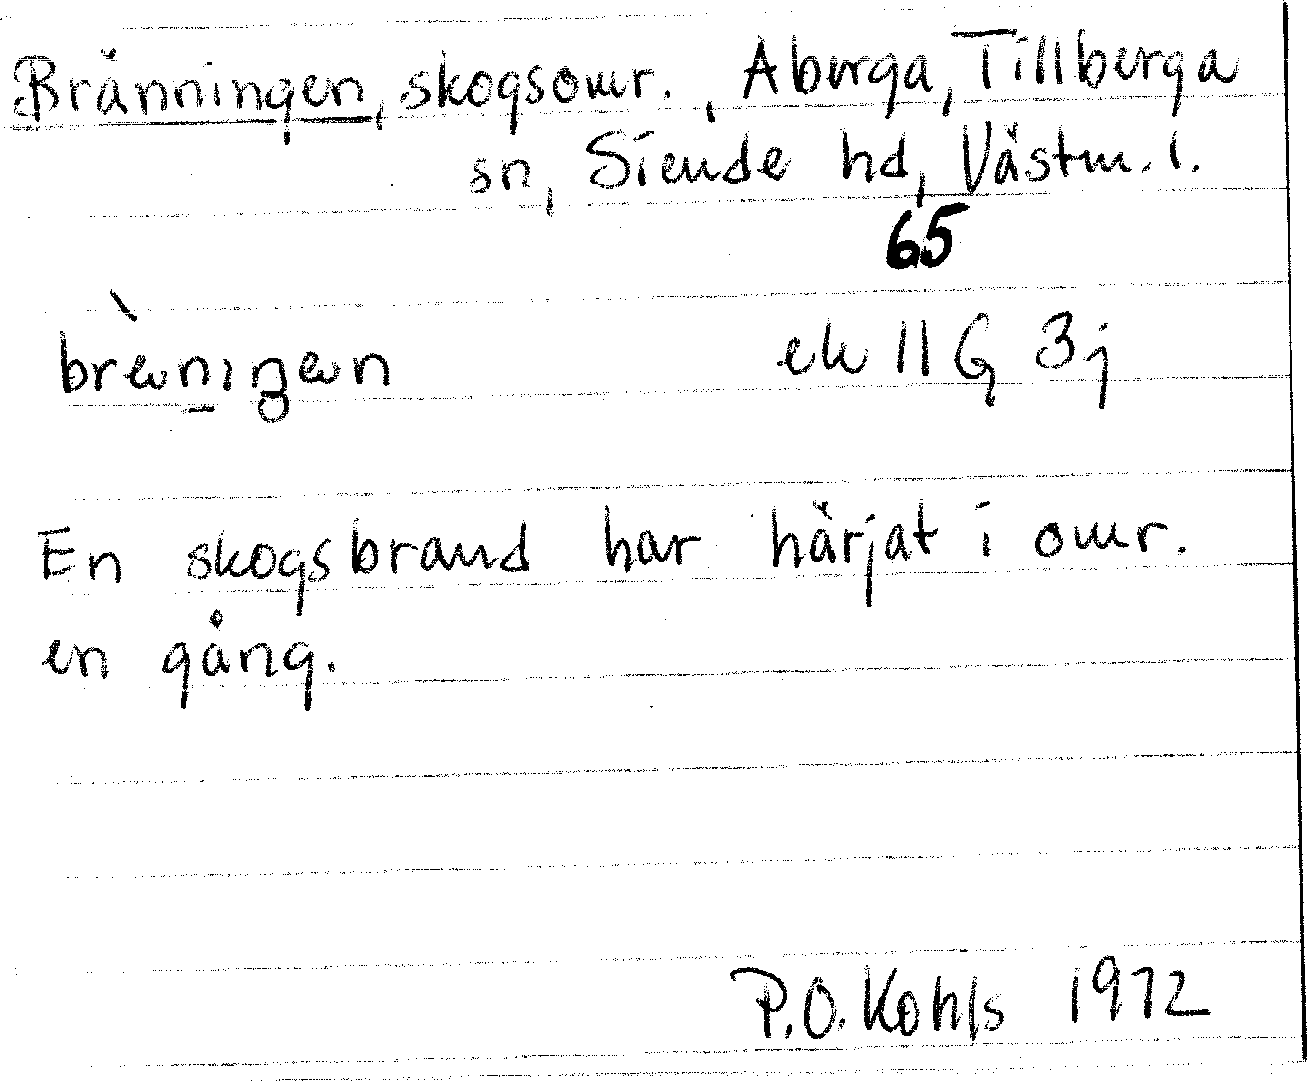 Bränningen, skogsomr., Aberga, Tillberga
sn, Siende hd, Västm. l.
65
brèni̠ŋen ek 11 G 3j
En skogsbrand har härjat i omr.
en gång.
P.O. Kohls 1972